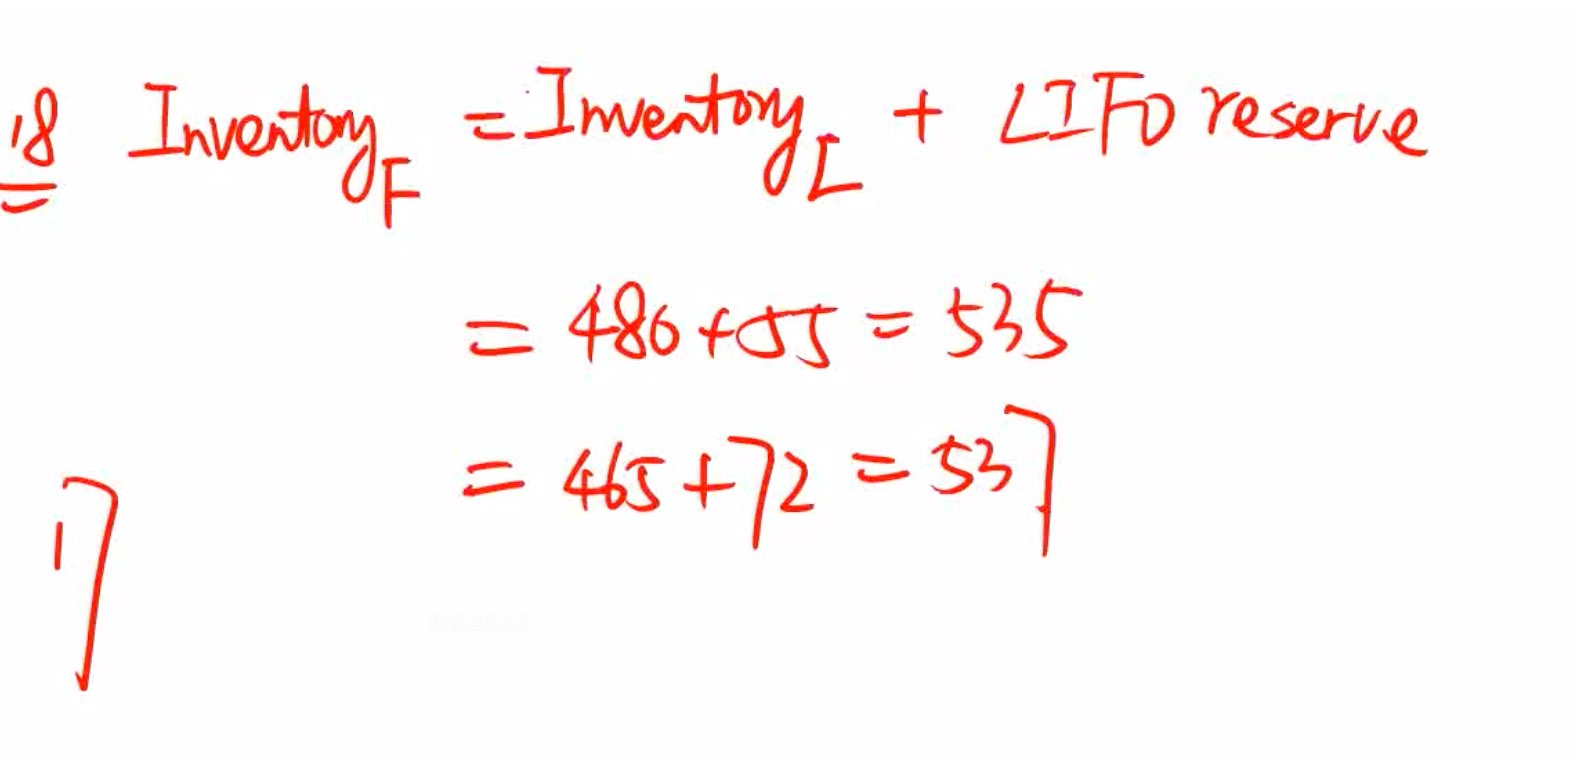 18 Inventory_F = Inventory_L + LIFO reserve
= 480 + 55 = 535
= 465 + 72 = 537
17